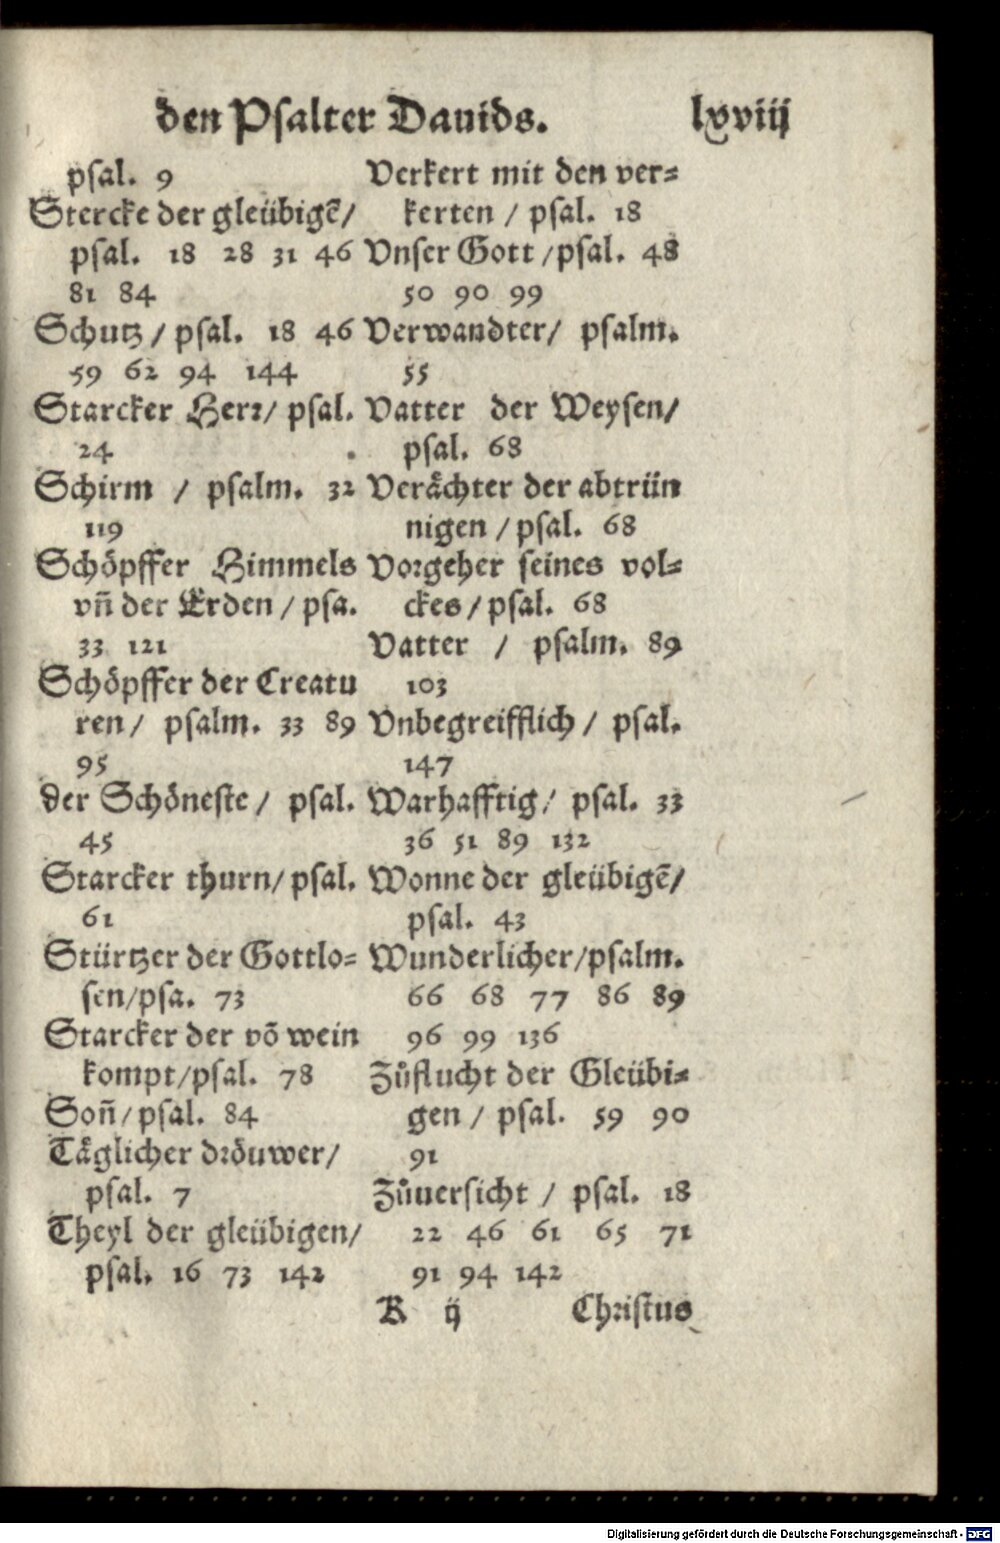 den Psalter Dauids. lxviij
psal. 9
Stercke der gleübigẽ/
psal. 18 28 31 46
81 84
Schutz / psal. 18 46
59 62 94 144
Starcker Herr/ psal.
24
Schirm / psalm. 32
119
Schöpffer Himmels
vñ der Erden / psa.
33 121
Schöpffer der Creatu
ren / psalm. 33 89
95
der Schöneste / psal.
45
Starcker thurn/ psal.
61
Stürtzer der Gottlo=
sen/psa. 73
Starcker der võ wein
kompt/psal. 78
Soñ/psal. 84
Täglicher dröuwer/
psal. 7
Theyl der gleübigen/
psal. 16 73 142
Verkert mit den ver=
kerten / psal. 18
Vnser Gott /psal. 48
50 90 99
Verwandter/ psalm.
55
Vatter der Weysen/
psal. 68
Verächter der abtrün
nigen / psal. 68
Vorgeher seines vol=
ckes / psal. 68
Vatter / psalm. 89
103
Vnbegreifflich / psal.
147
Warhafftig/ psal. 33
36 51 89 132
Wonne der gleübigẽ/
psal. 43
Wunderlicher/psalm.
66 68 77 86 89
96 99 136
Zůflucht der Gleübi=
gen / psal. 59 90
91
Zůuersicht / psal. 18
22 46 61 65 71
91 94 142
K ij Christus
Digitalisierung gefördert durch die Deutsche Forschungsgemeinschaft - DFG